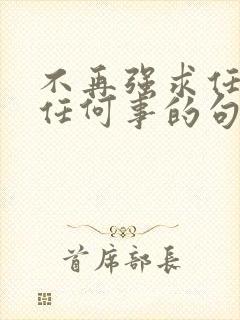 不再强求任
任何事的句
首席部长